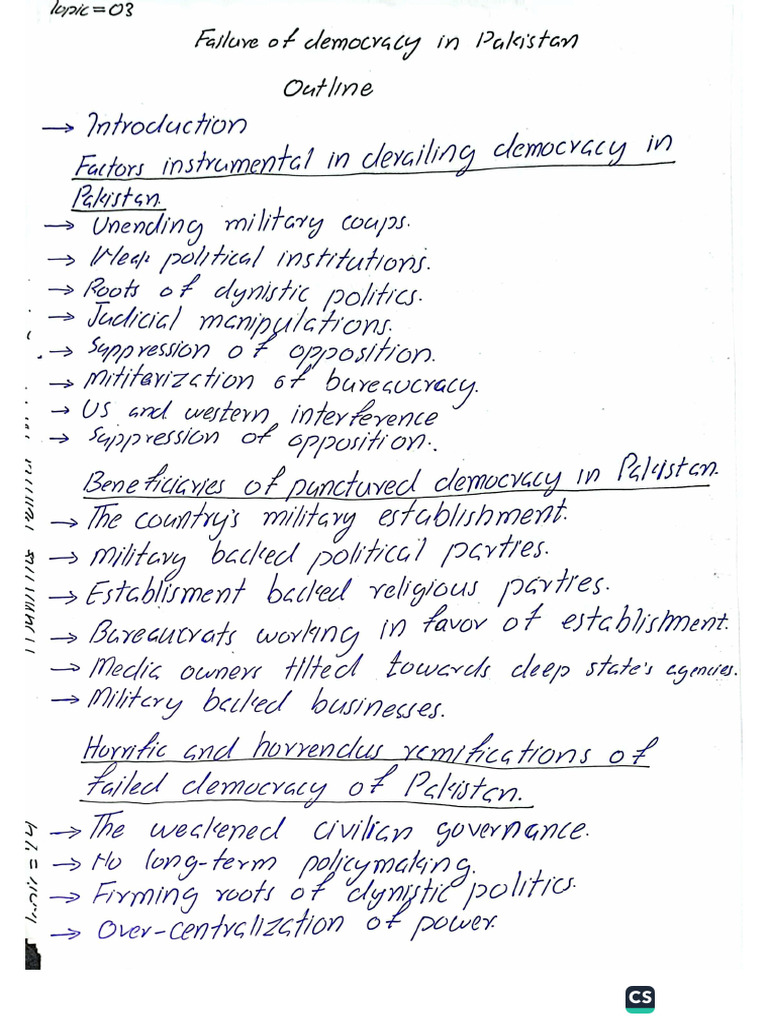 Topic = 03
Failure of democracy in Pakistan
Outline
→ Introduction
Factors instrumental in derailing democracy in
Pakistan.
→ Unending military coups.
→ Weak political institutions.
→ Roots of dynistic politics.
→ Judicial manipulations.
→ Suppression of opposition.
→ Mititerization of bureaucracy.
→ US and western interference
→ Suppression of opposition.
Beneficiaries of punctured democracy in Pakistan.
→ The country's military establishment.
→ Military backed political parties.
→ Establisment backed religious parties.
→ Bureaucrats working in favor of establishment.
→ Media owners tilted towards deep state's agencies.
→ Military backed businesses.
Horrific and horrendus remifications of
failed democracy of Pakistan.
→ The weakened civilian governance.
→ No long-term policymaking.
→ Firming roots of dynistic politics.
→ Over-centralization of power.
CS